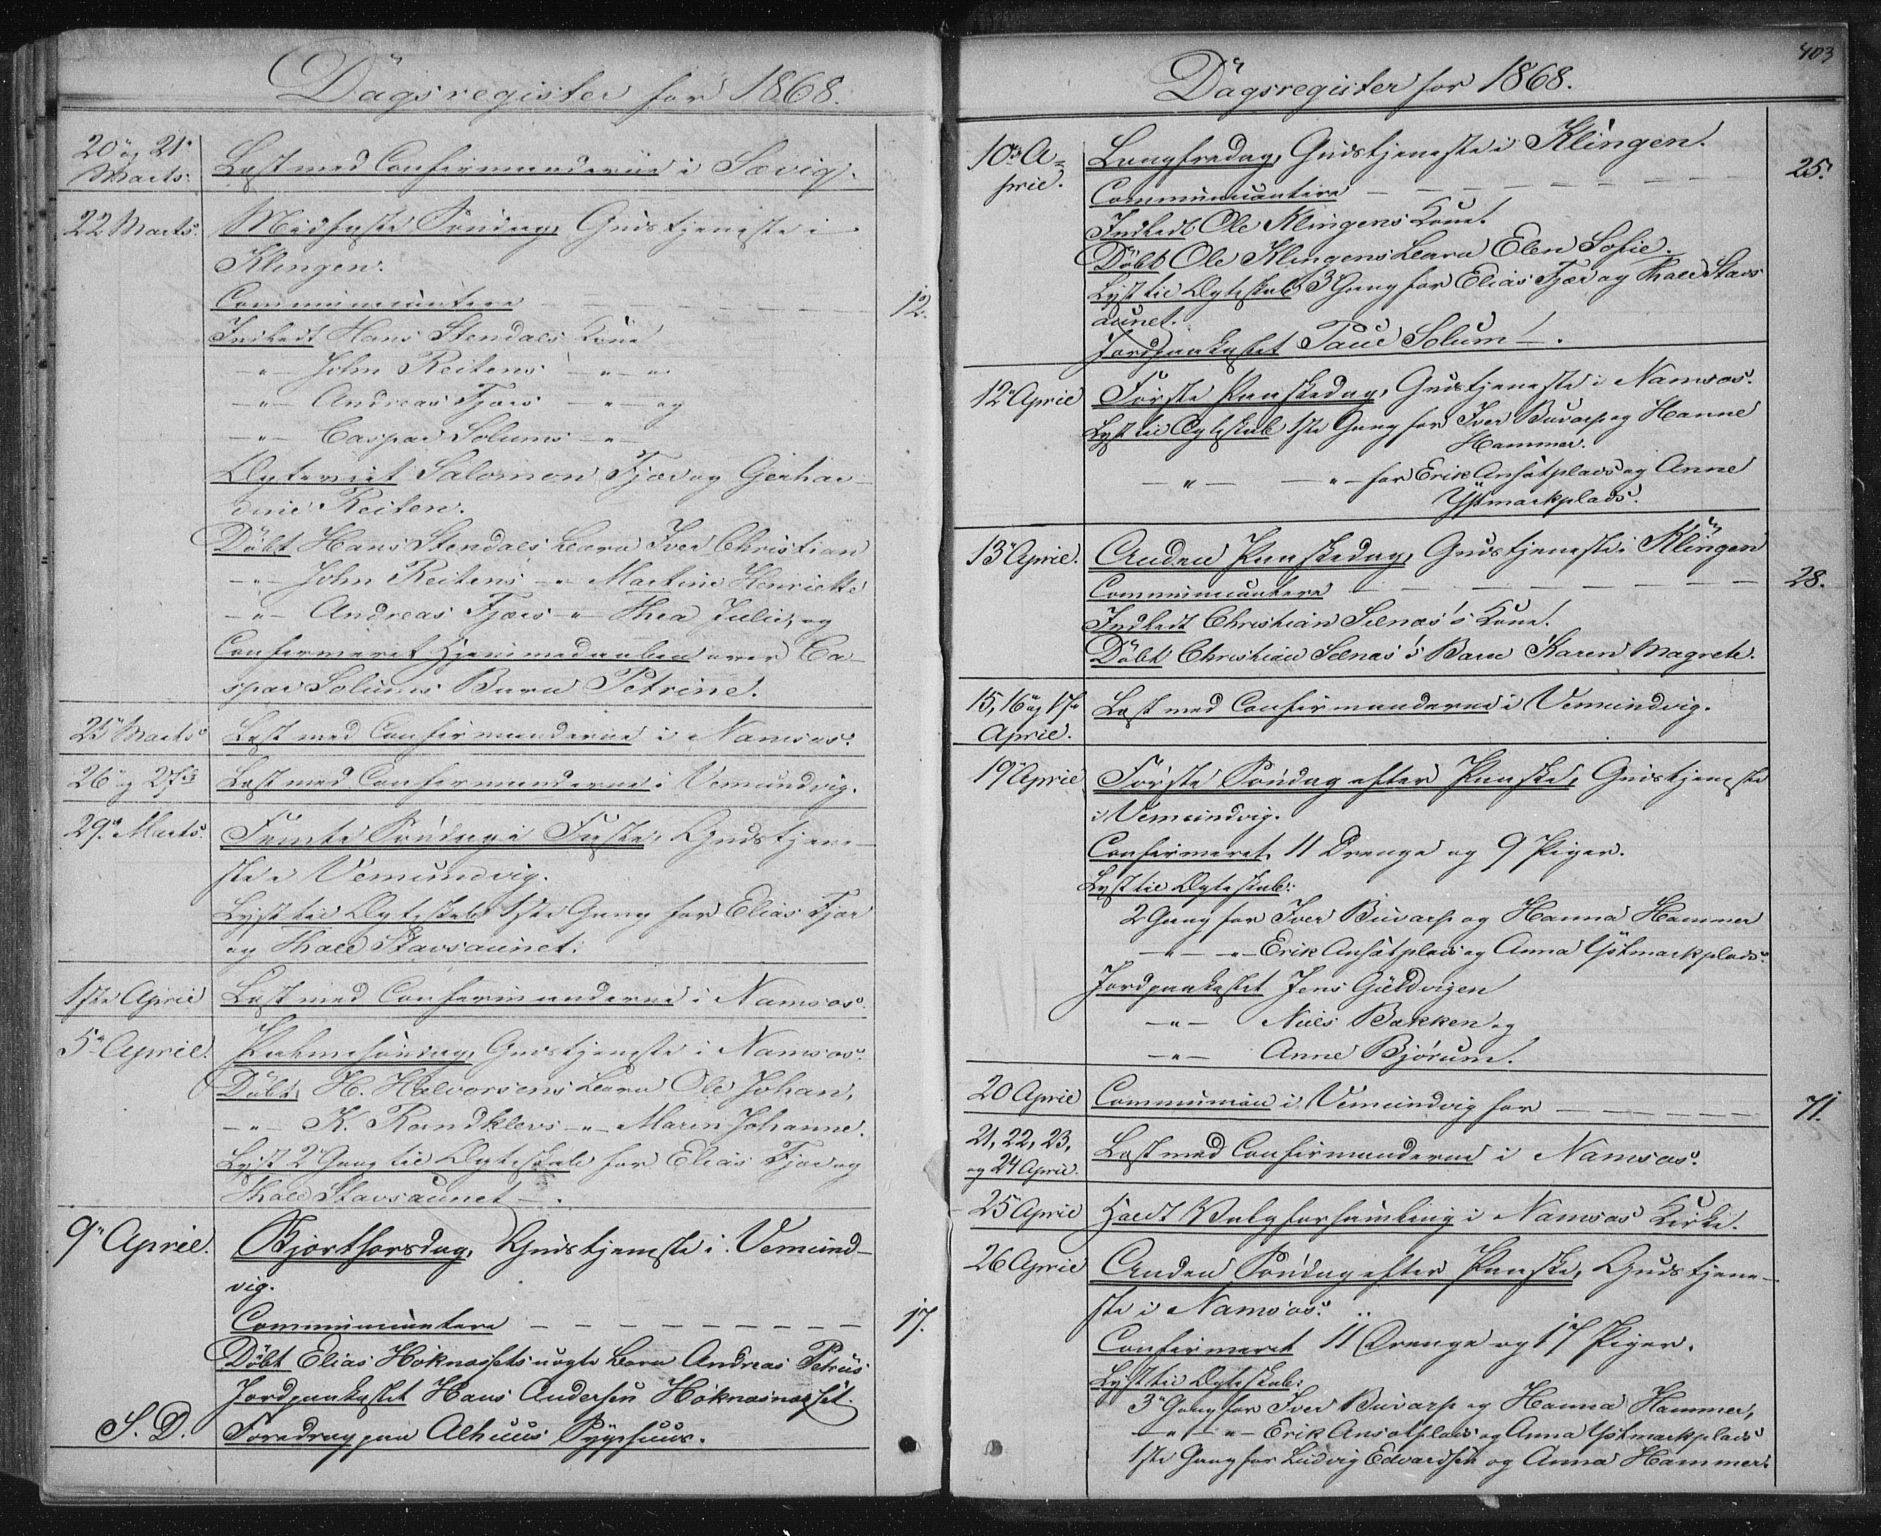 Dagsregister for 1868.
20 og 21 Marts. Læst med Confirmanderne i Sævig.
22 Marts. Midfaste Søndag, Gudstjeneste i
Klingen.
Communicantere — — — — 12.
Indledt Hans Stendals Kone
-"- John Reitens -"-
-"- Andreas Fjærs -"- og
-"- Caspar Solums -"-
Ægteviet Salomon Fjær og Gerhar-
dine Reiten.
Døbt Hans Stendals Barn Iver Christian
-"- John Reitens -"- Martine Henriette
-"- Andreas Fjærs -"- Thea Julie, og
Confirmeret Hjemmedaaben over Ca-
spar Solums Barn Petrine.
25 Marts. Læst med Confirmanderne i Namsos.
26 og 27 Læst med Confirmanderne i Vemundvig.
29 Marts. Femte Søndag i Faste, Gudstjene-
ste i Vemundvig.
Lyst til Ægteskab 1ste Gang for Elias Fjær
og Thale Stavsaunet.
1ste April Læst med Confirmanderne i Namsos.
5 April. Palmesøndag, Gudstjeneste i Namsos.
Døbt, H. Halvorsens Barn Ole Johan,
-"- K. Randklevs -"- Maren Johanne.
Lyst 2 Gang til Ægteskab for Elias Fjær og
Thale Stavsaunet —.
9 April. Skjærthorsdag, Gudstjeneste i Vemund-
vig.
Communicantere — — — — — — 17.
Døbt Elias Høknæssets uægte Barn Andreas Petrus
Jordpaakastet Hans Andersen Høknæsnæsset.
S. D. Foredrag paa Alhuus Sygehuus.
403
Dagsregister for 1868.
10 A-
pril. Langfredag, Gudstjeneste i Klingen.
Communicantere — — — — — — 25.
Indledt Ole Klingens Kone.
Døbt Ole Klingens Barn Elen Sofie.
Lyst til Ægteskab 3 Gang for Elias Fjær og Thale Stavs
aunet.
Jordpaakastet Paul Solum —.
12 April Første Paaskedag, Gudstjeneste i Namsos.
Lyst til Ægteskab 1ste Gang for Iver Buvarp og Hanne
Hammer.
-"- -"- for Erik Ansatplads og Anne
Ystmarkplads.
13 April. Anden Paaskedag, Gudstjeneste i Klingen
Communicantere — — — — — — 28.
Indledt Christian Selnæs's Kone.
Døbt Christian Selnæs's Barn Karen Magrete.
15, 16 og 17
April. Læst med Confirmanderne i Vemundvig.
19 April Første Søndag efter Paaske, Gudstjeneste
i Vemundvig.
Confirmeret, 11 Drenge og 9 Piger.
Lyst til Ægteskab:
2 Gang for Iver Buvarp og Hanna Hammer
-"- -"- Erik Ansatplads og Anna Ystmarkplads.
Jordpaakastet Jens Guldvigen
-"- Niels Bakken og
-"- Anne Bjørum.
20 April Communion i Vemundvig for — — — — 71.
21, 22, 23,
og 24 April. Læst med Confirmanderne i Namsos.
25 April Holdt Valgforsamling i Namsos Kirke.
26 April Anden Søndag efter Paaske, Gudstjene-
ste i Namsos.
Confirmeret 11 Drenge og 17 Piger.
Lyst til Ægteskab:
3 Gang for Iver Buvarp og Hanna Hammer,
-"- -"- Erik Ansatplads og Anna Ystmarkplads
1ste Gang for Ludvig Edvardsen og Anna Hammer.